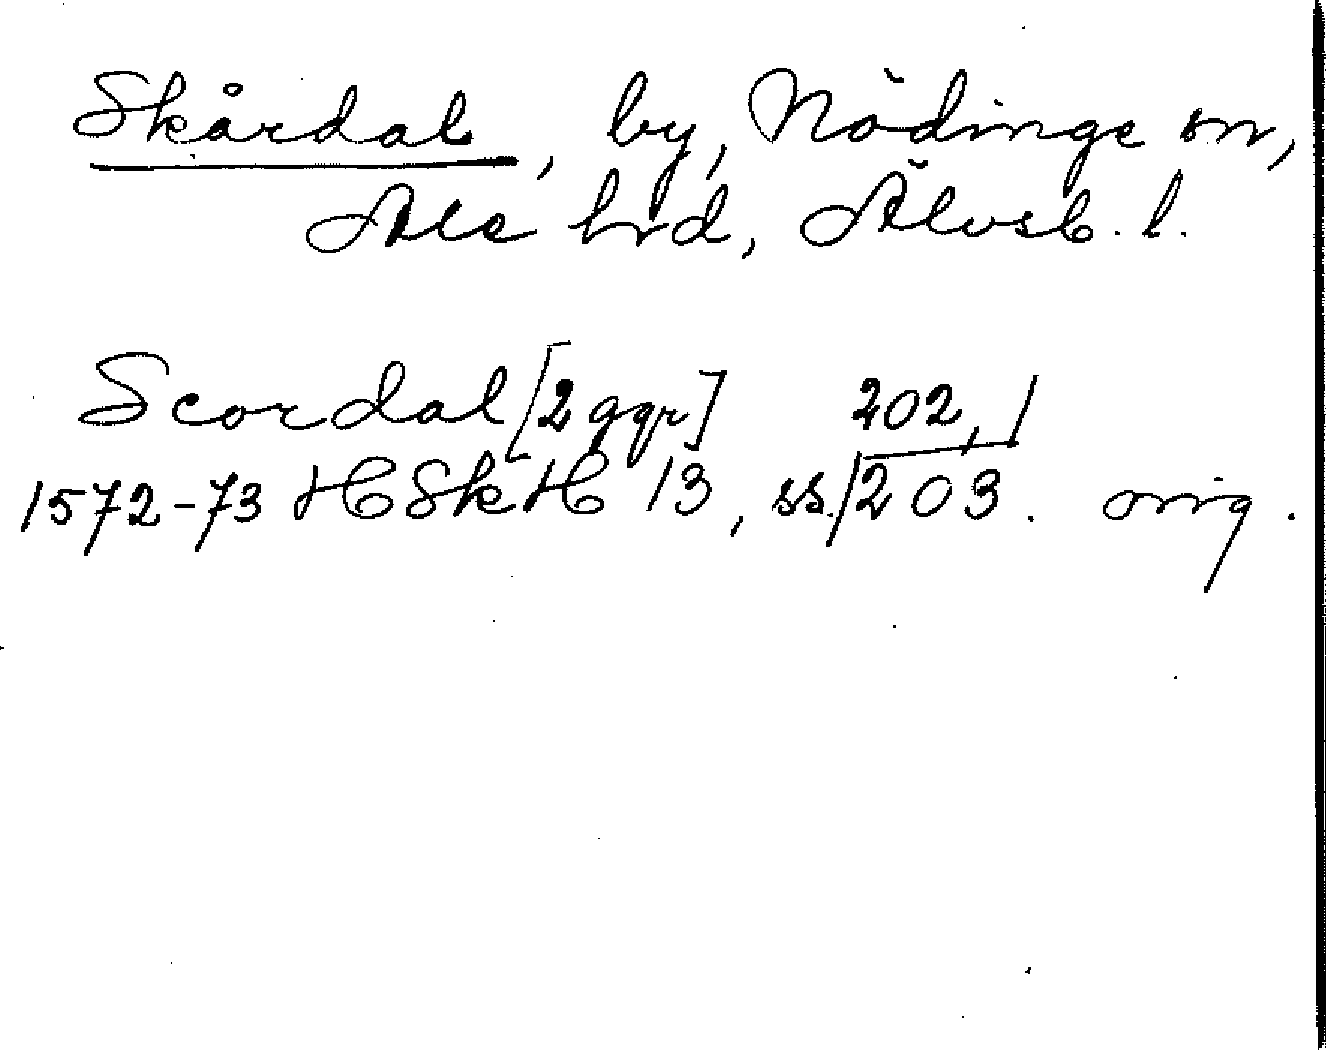 Skårdal, by, Nödinge sn,
Ale hrd, Älvsb. l.
Scordal [2 ggr] 202,
1572-73 HSkH 13, ss. 203. orig.